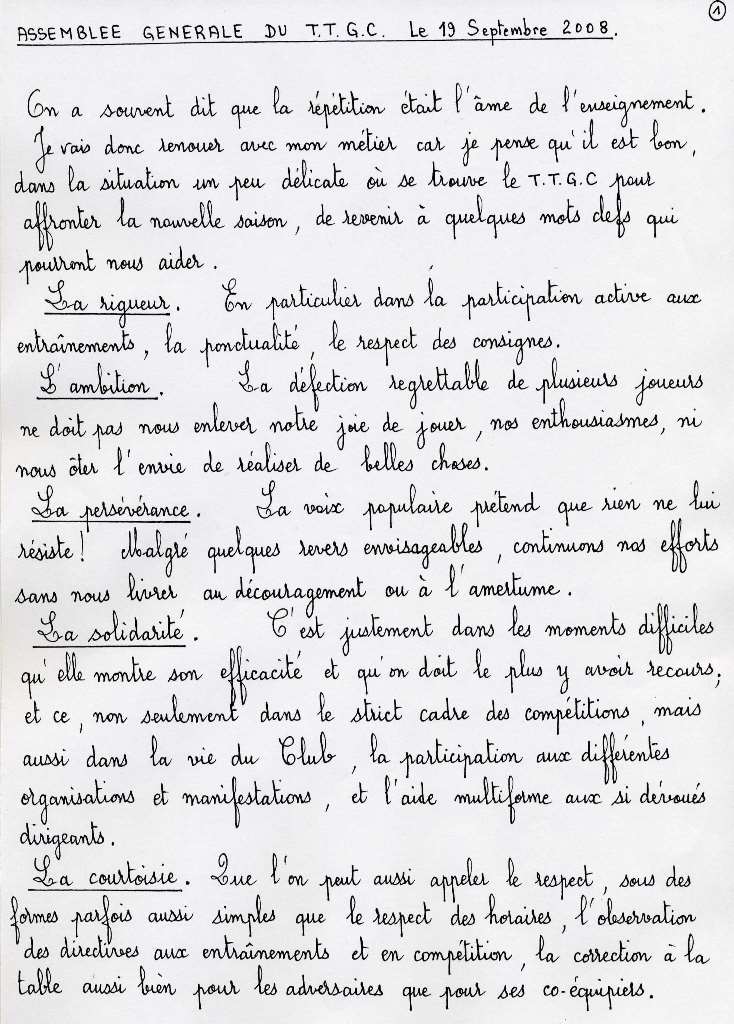 1
ASSEMBLEE GENERALE DU T.T.G.C. Le 19 Septembre 2008.
On a souvent dit que la répétition était l'âme de l'enseignement.
Je vais donc renouer avec mon métier car je pense qu'il est bon,
dans la situation un peu délicate où se trouve le T.T.G.C pour
affronter la nouvelle saison, de revenir à quelques mots clefs qui
pourront nous aider.
La rigueur. En particulier dans la participation active aux
entraînements, la ponctualité, le respect des consignes.
L'ambition. La défection regrettable de plusieurs joueurs
ne doit pas nous enlever notre joie de jouer, nos enthousiasmes, ni
nous ôter l'envie de réaliser de belles choses.
La persévérance. La voix populaire prétend que rien ne lui
résiste! Malgré quelques revers envisageables, continuons nos efforts
sans nous livrer au découragement ou à l'amertume.
La solidarité. C'est justement dans les moments difficiles
qu'elle montre son efficacité et qu'on doit le plus y avoir recours,
et ce, non seulement dans le strict cadre des compétitions, mais
aussi dans la vie du Club, la participation aux différentes
organisations et manifestations, et l'aide multiforme aux si dévoués
dirigeants.
La courtoisie. Que l'on peut aussi appeler le respect, sous des
formes parfois aussi simples que le respect des horaires, l'observation
des directives aux entraînements et en compétition, la correction à la
table aussi bien pour les adversaires que pour ses co-équipiers.